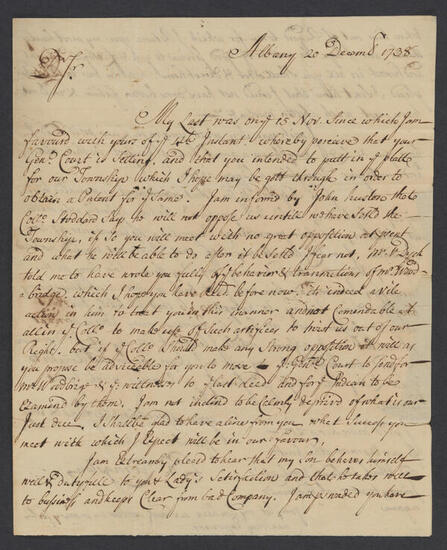 Albany 20 Decemb 1738
Sr.
My Last was on ye 15 Nov. Since which I am
favourd with yours of ye Instant whereby perceive that your
Genl. Court is Setting, and that you intended to putt in ye platt
for our Township which I hope may be gott through in order to
obtain a Patent for ye Same. I am informd by John huston that
Collo. Stoddard Says he will not oppose us untill we have Setld the
Township, if So you will meet with no great opposition at psent
and what he will be able to do after it be Setld I fear not, Mr.
told me to have wrote you fully of ye behavior & transactions of Mr. Wood
=bridge, which I hope you have Recd before now. Its indeed a vile
action in him to treat you in this manner and not Comendable at
all in ye Collo. to make use of Such artifices to twist us out of our
Right. but if ye Collo. Should make any Strong opposition it will as
you propose be adviceable for you to move ye Genll. Court to Send for
Mr. Woodbridge & ye wittnesses to ye last deed and for ye Indean to be
Examind by them. I am not inclind to be Deprived of what is our
Just due. I Shall be glad to have a line from you what Success you
meet with which I Expect will be in our favour,
I am Extreamly pleasd to hear that my Son behaves himself
well & dutyfull to you & Lady's Satisfaction and that he takes well
to bussiness and keeps Clear from bad Company. I am pswaded you have